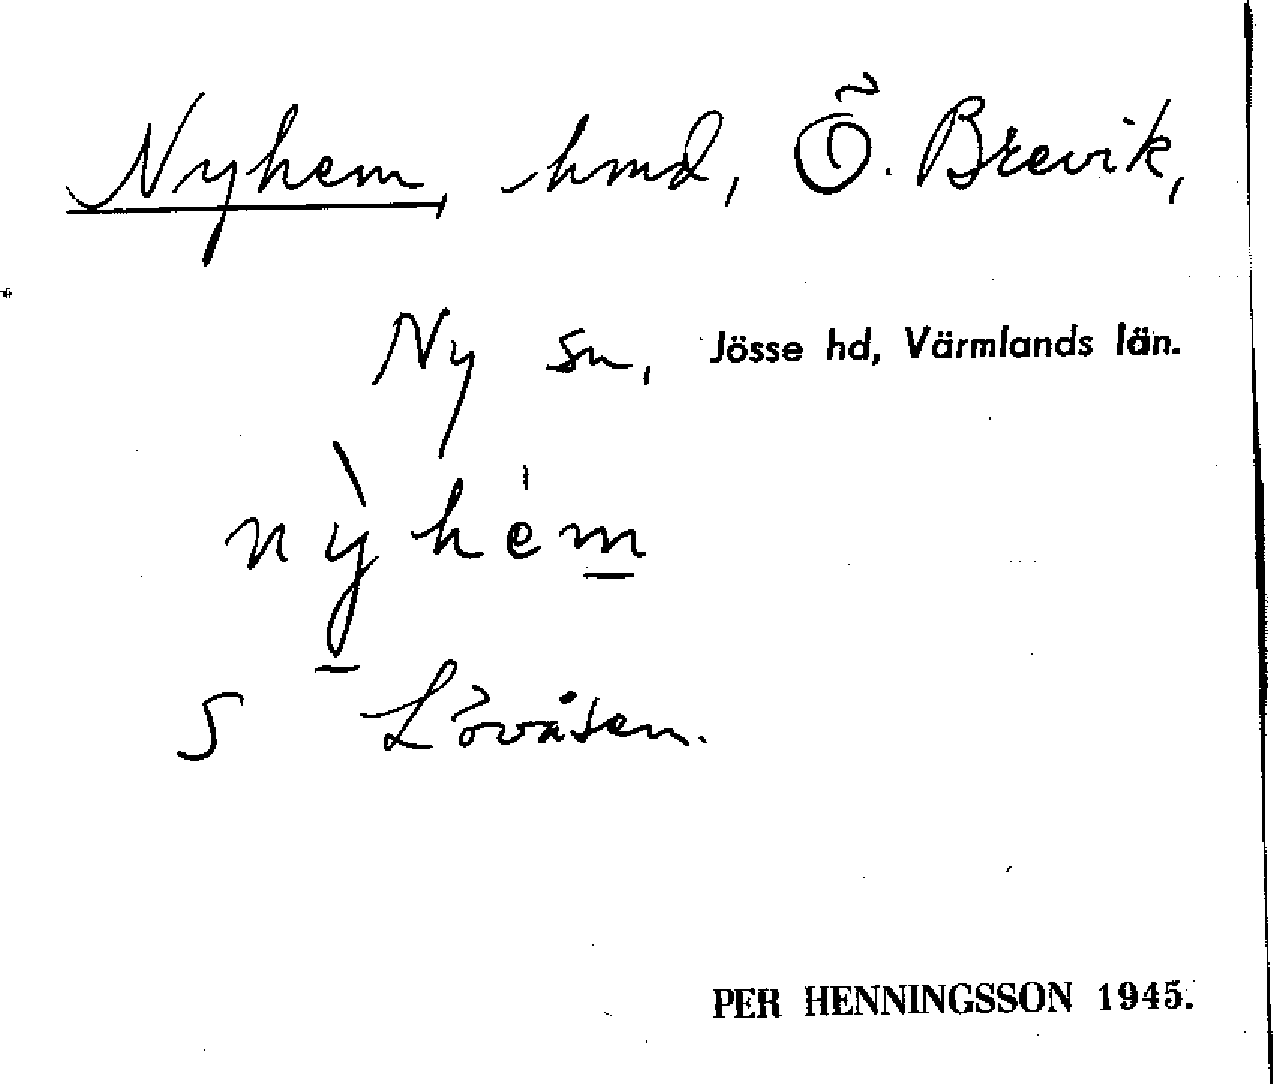 Nyhem, hmd, Ö. Brevik,
Ny sn, Jösse hd, Värmlands län.
nỳhém
S Lövåsen.
PER HENNINGSSON 1945.